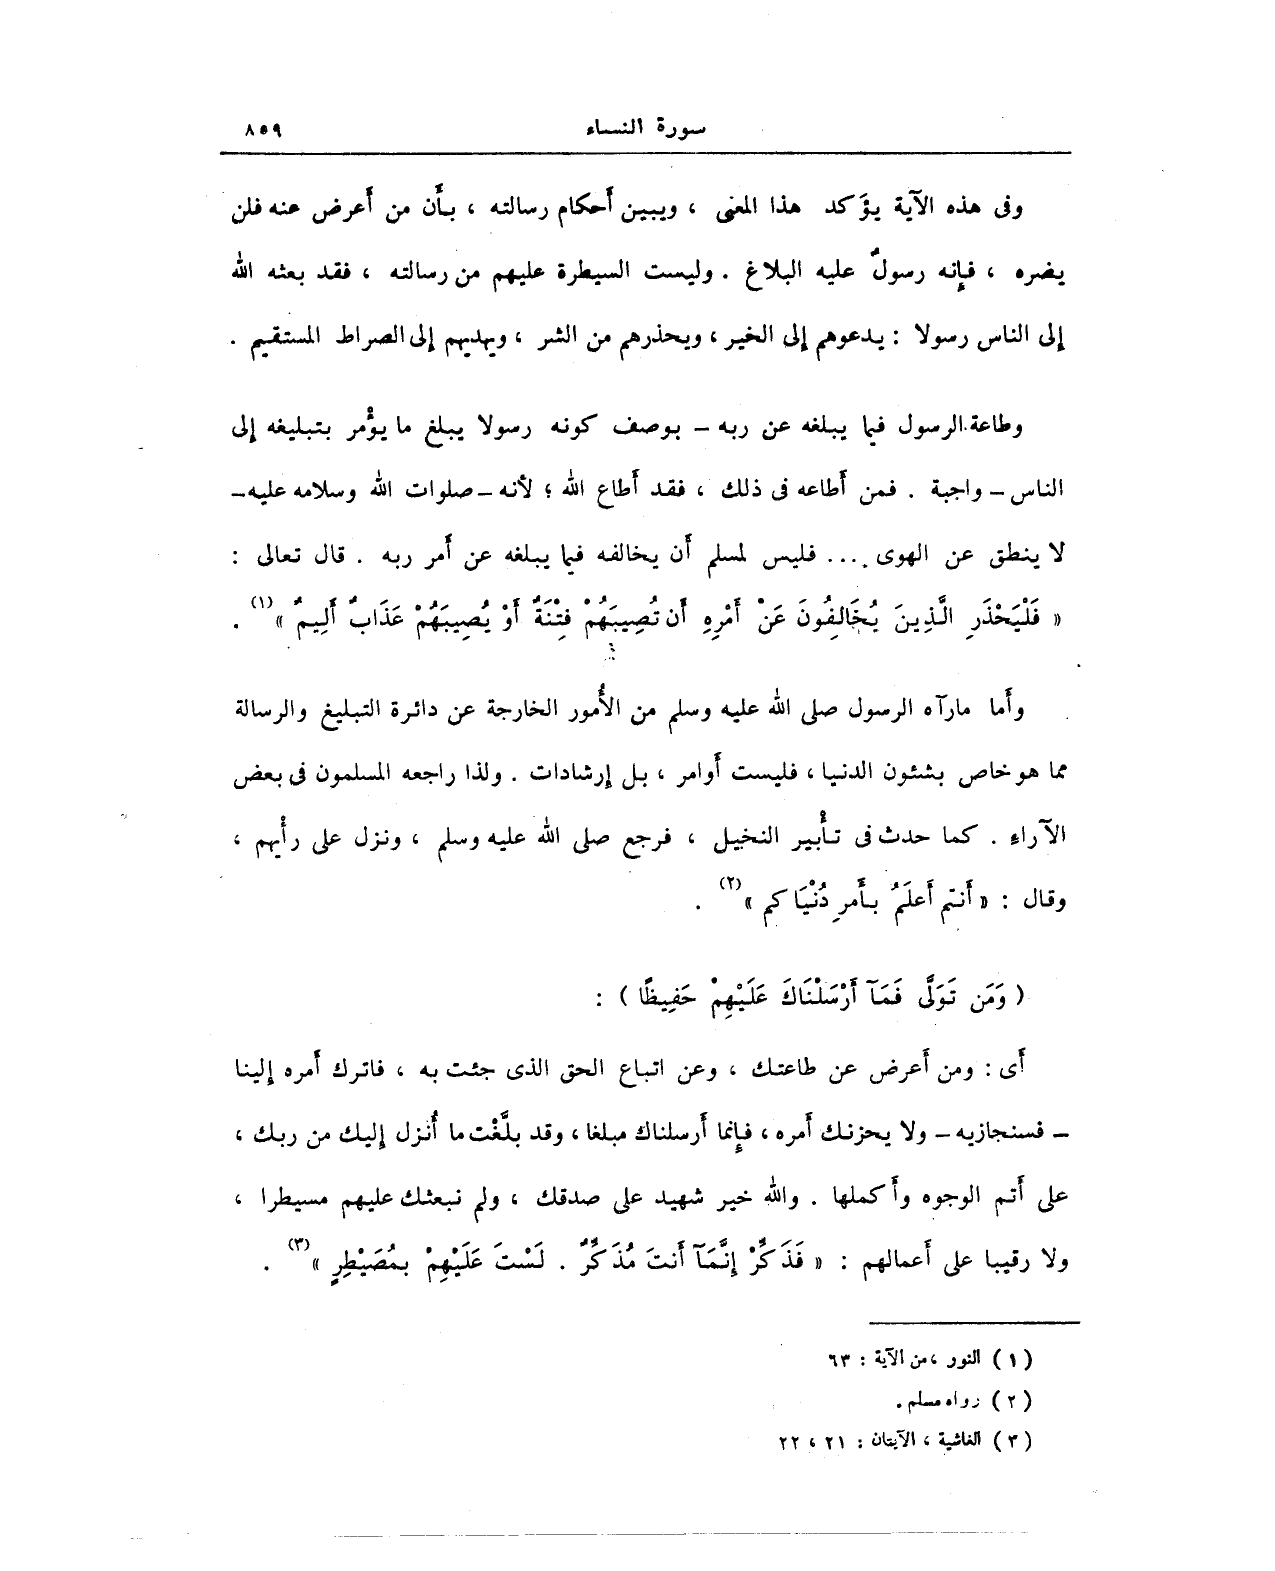 سورة النساء ٨٥٩
وفى هذه الآية يؤَكد هذا المعنى ، ويبين أَحكام رسالته ، بأَن من أَعرض عنه فلن
يضره ، فإِنه رسولٌ عليه البلاغ . وليست السيطرة عليهم من رسالته ، فقد بعثه الله
إلى الناس رسولا : يدعوهم إلى الخير ، ويحذرهم من الشر ، ويهديهم إلى الصراط المستقيم .
وطاعة الرسول فيما يبلغه عن ربه – بوصف كونه رسولا يبلغ ما يؤْمر بتبليغه إلى
الناس – واجبة . فمن أَطاعه فى ذلك ، فقد أَطاع الله ؛ لأَنه – صلوات الله وسلامه عليه –
لا ينطق عن الهوى .... فليس لمسلم أَن يخالفه فيما يبلغه عن أَمر ربه . قال تعالى :
« فَلْيَحْذَرِ الَّذِينَ يُخَالِفُونَ عَنْ أَمْرِهِ أَن تُصِيبَهُمْ فِتْنَةٌ أَوْ يُصِيبَهُمْ عَذَابٌ أَلِيمٌ »(١) .
وأَما مارآه الرسول صلى الله عليه وسلم من الأُمور الخارجة عن دائرة التبليغ والرسالة
مما هو خاص بشئون الدنيا ، فليست أَوامر ، بل إرشادات . ولذا راجعه المسلمون فى بعض
الآراء . كما حدث فى تأْبير النخيل ، فرجع صلى الله عليه وسلم ، ونزل على رأْيهم ،
وقال : « أَنتم أَعلَمُ بأَمرِ دُنْيَاكم »(٢) .
( وَمَن تَوَلَّى فَمَآ أَرْسَلْنَاكَ عَلَيْهِمْ حَفِيظًا ) :
أَى : ومن أَعرض عن طاعتك ، وعن اتباع الحق الذى جئت به ، فاترك أَمره إلينا
– فسنجازيه – ولا يحزنك أَمره ، فإِنما أَرسلناك مبلغا ، وقد بلَّغْت ما أُنزل إليك من ربك ،
على أَتم الوجوه وأَكملها . والله خير شهيد على صدقك ، ولم نبعثك عليهم مسيطرا ،
ولا رقيبا على أَعمالهم : « فَذَكِّرْ إِنَّمَآ أَنتَ مُذَكِّرٌ . لَسْتَ عَلَيْهِمْ بِمُصَيْطِرٍ »(٣) .
(١) النور ، من الآية : ٦٣
(٢) رواه مسلم .
(٣) الغاشية ، الآيتان : ٢١ ، ٢٢